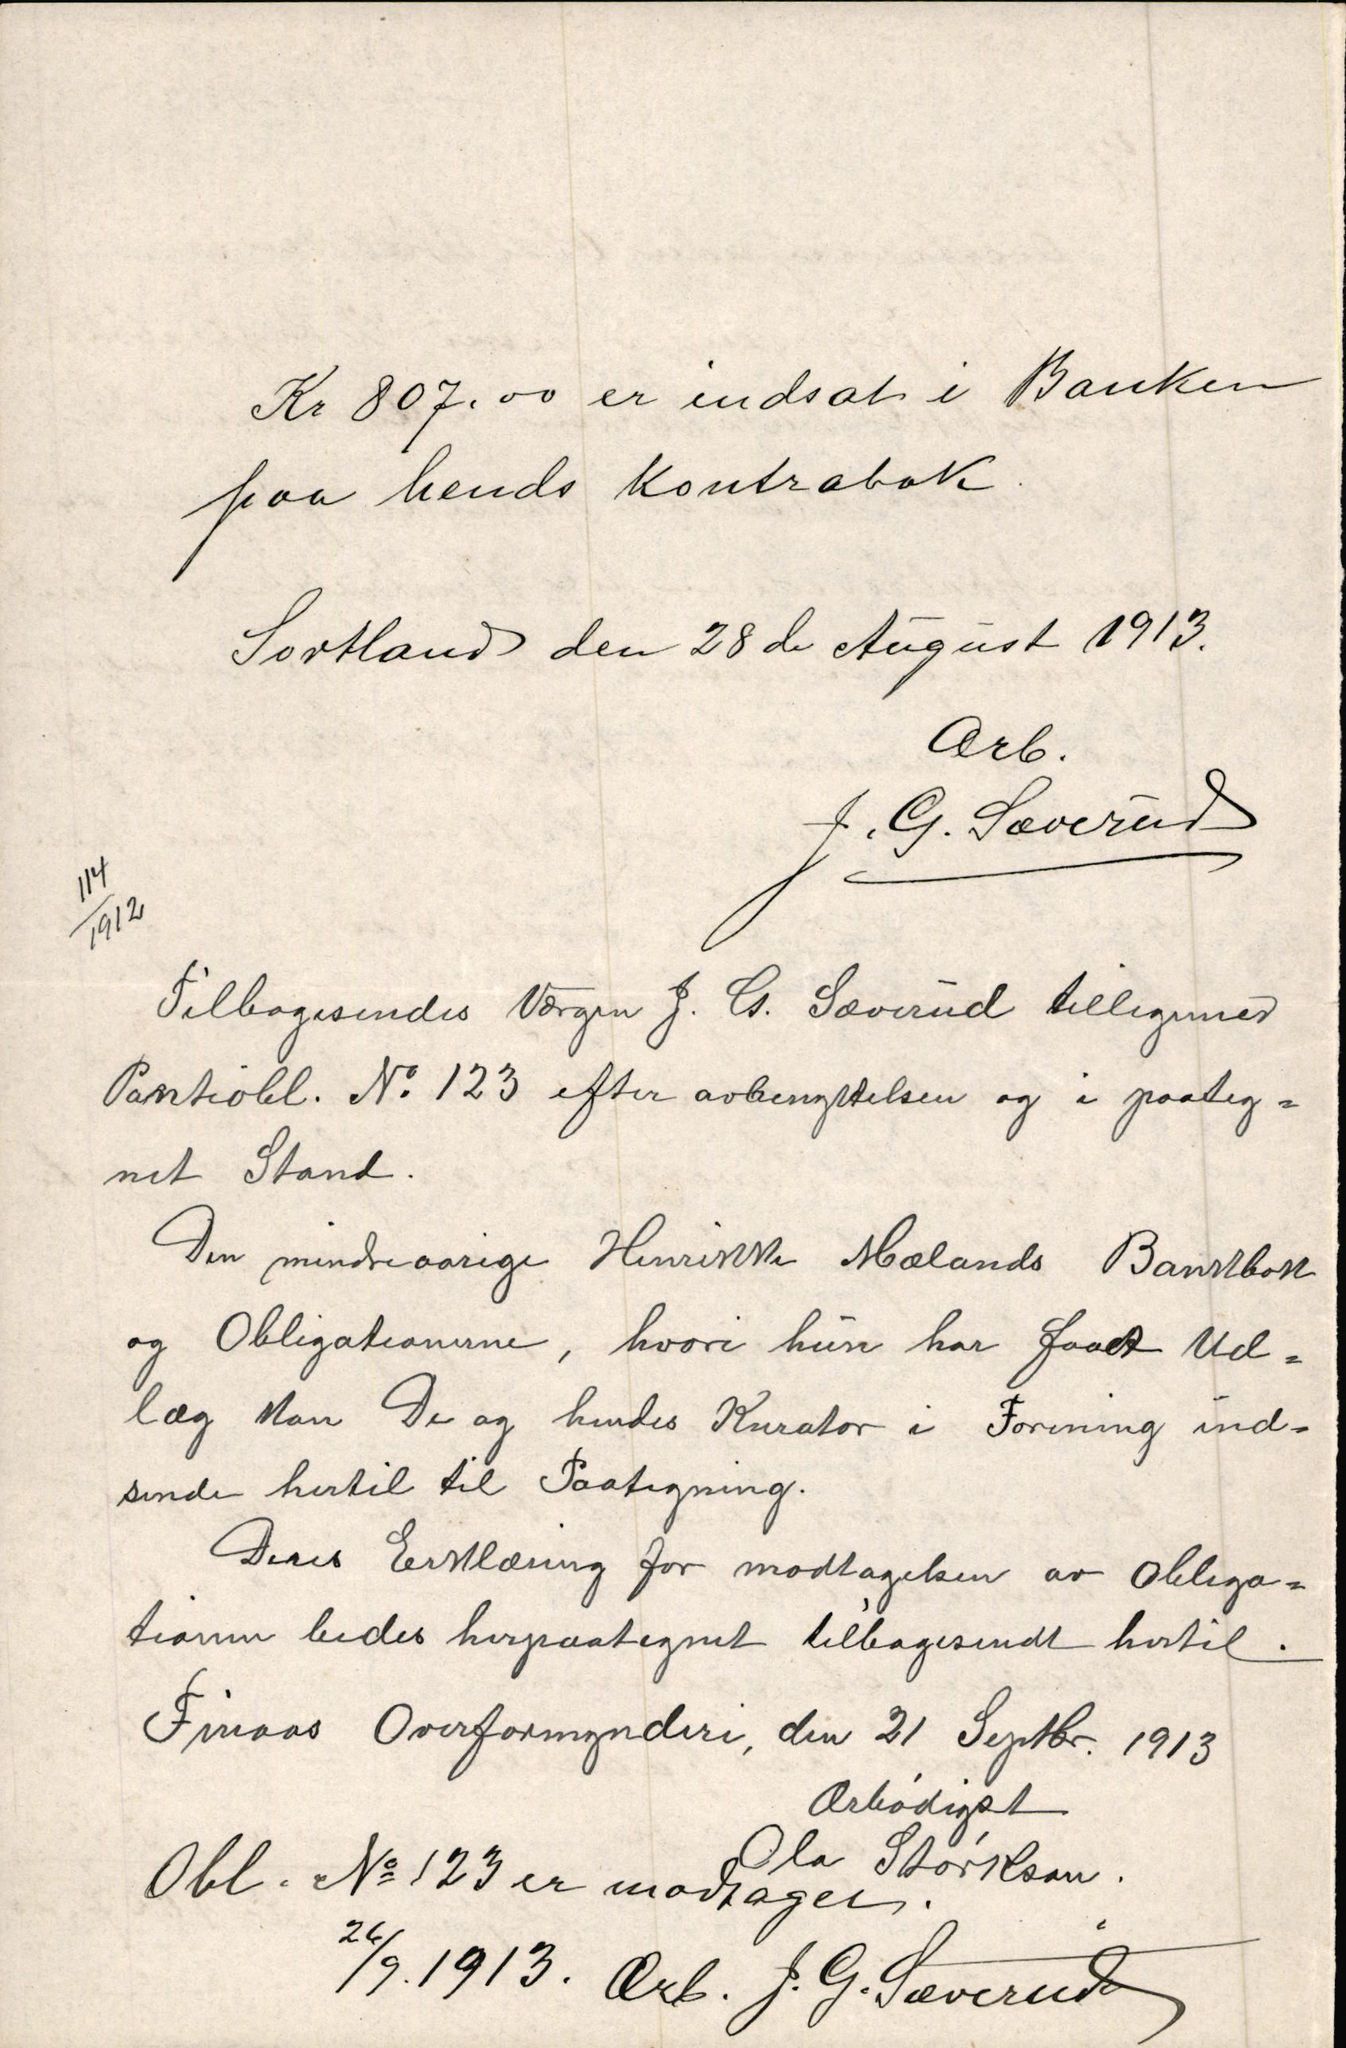 Kr 807.00 er indsat i Banken
paa hends Kontrabok.
Sortland den 28de August 1913.
Ærb.
J. G. Sæverud
114/1912
Tilbagesendes Værgen J. G. Sæverud tilligemed
Pantiobl. No. 123 efter avbenyttelsen og i paateg=
net Stand.
Den mindreaarige Henrikke Mælands Bankbok
og Obligationerne, hvori hun har faaet Ud=
læg kan De og hendes Kurator i Forening ind=
sende hertil til Paategning.
Deres Erklæring for modtagelsen av Obliga=
tionen bedes herpaategnet tilbagesendt hertil.
Finaas Overformynderi, den 21 Septbr. 1913
Ærbødigst
Ola Størkson.
Obl. No 123 er modtaget.
26/9. 1913. Ærb. J. G. Sæverud